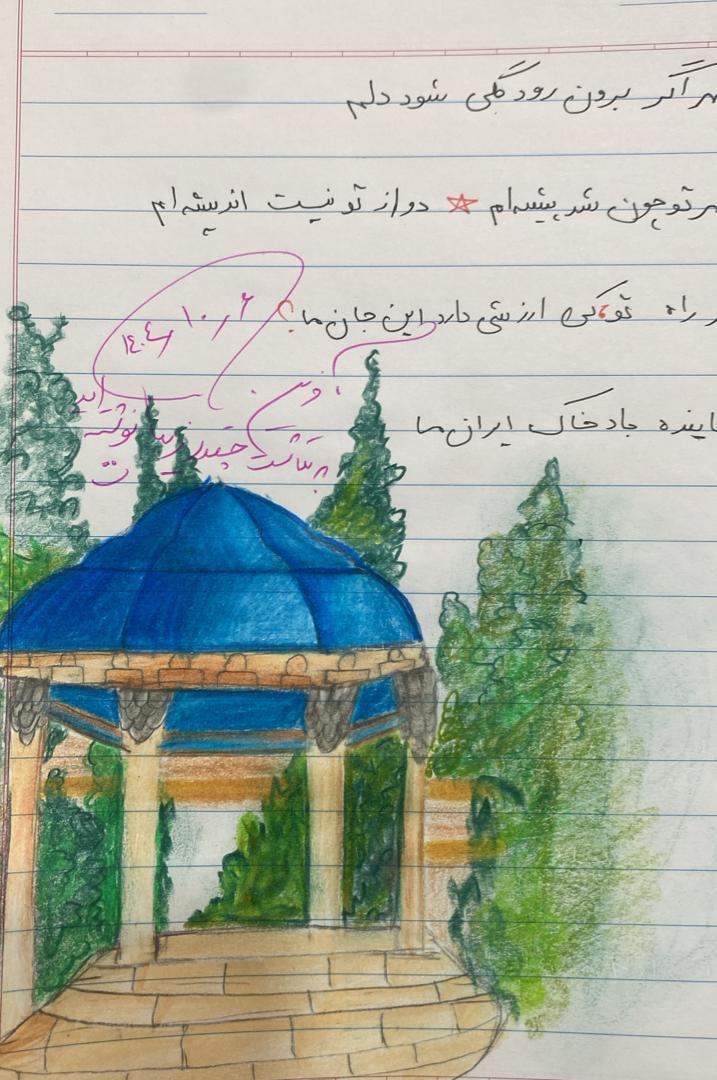 اگر برون رود گلی شود دلم
تو چون شد پیشه‌ام ☆ دور از تو نیست اندیشه‌ام
راه تو کی ارزشی دارد این جان ما؟
۱۴۰۴/۱۰/۶
آفرین
باد خاک ایران ما
چقدر زیبا نوشته اید